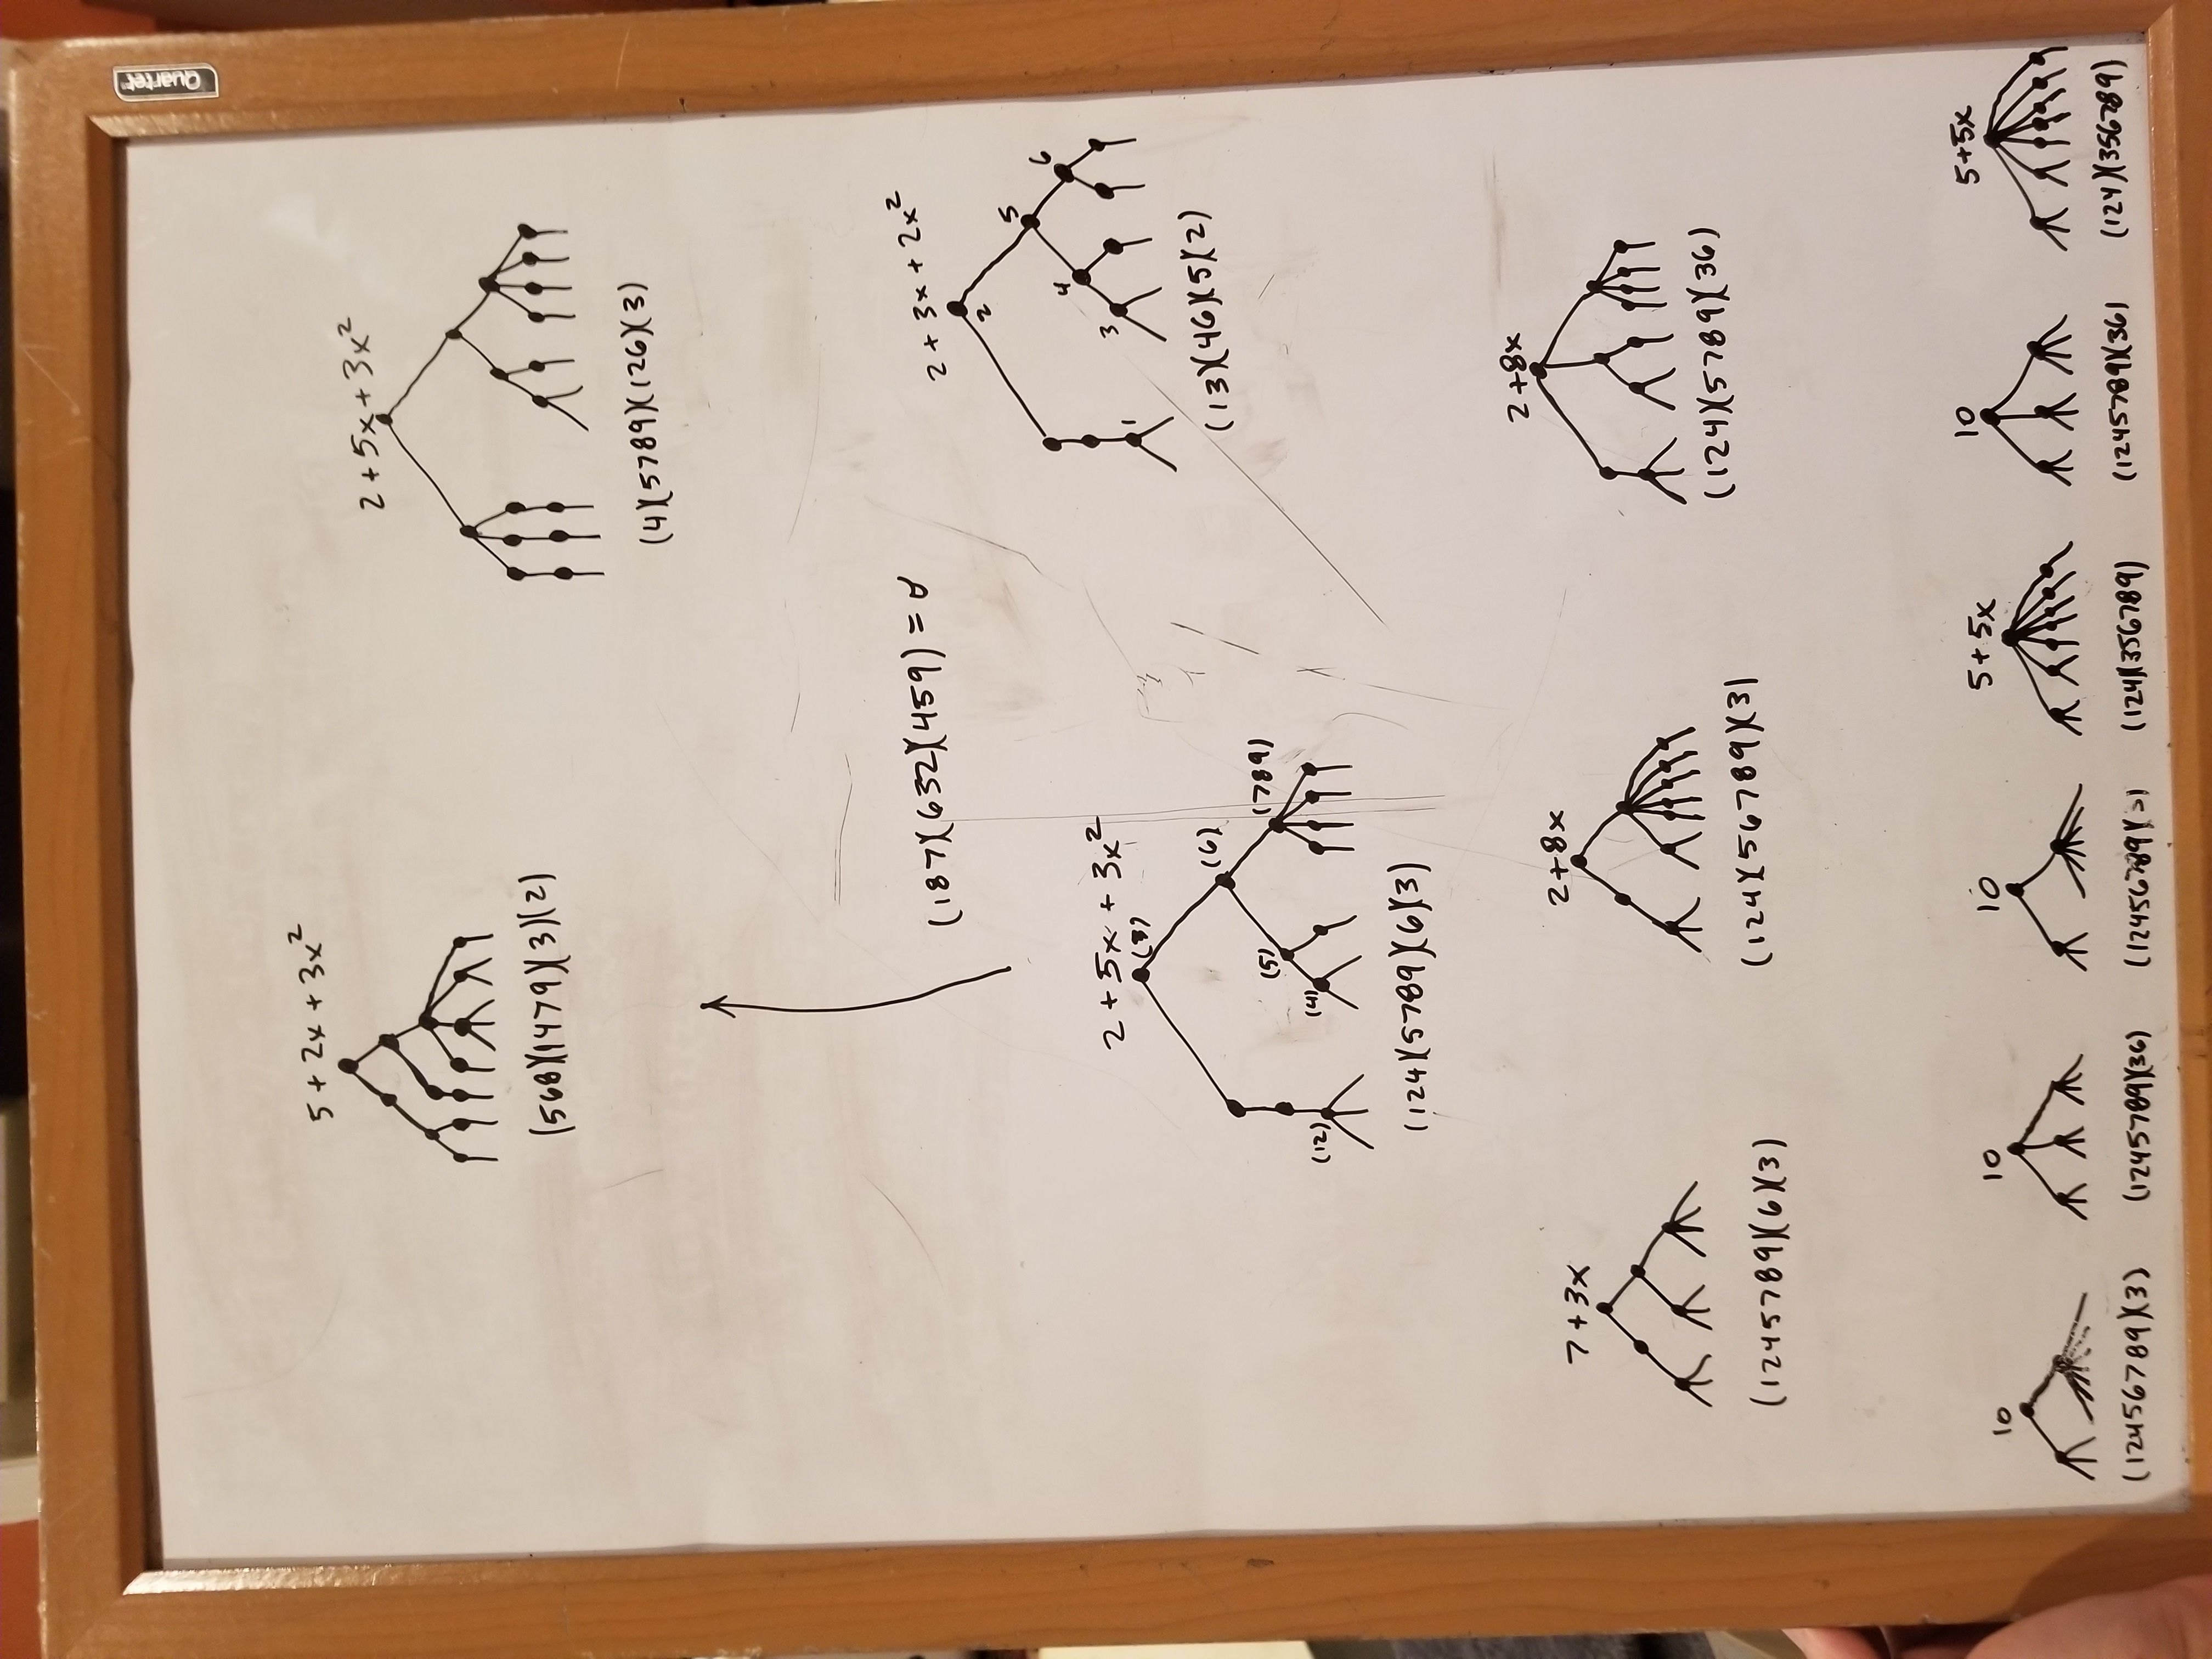 Quartet
5 + 2x + 3x²
(568)(1479)(3)(2)
2 + 5x + 3x²
(4)(5789)(126)(3)
(187)(632)(459) =
2 + 3x + 2x²
2
5
4
6
3
1
(13)(46)(5)(2)
2 + 5x + 3x²
(3)
(6)
(5)
(789)
(12)
(4)
(124)(5789)(6)(3)
7 + 3x
(1245789)(6)(3)
2 + 8x
(124)(56789)(3)
2 + 8x
(124)(5789)(36)
10
(12456789)(3)
10
(1245789)(36)
10
(12456789)
5 + 5x
(124)(356789)
10
(1245789)(36)
5 + 5x
(124)(356789)